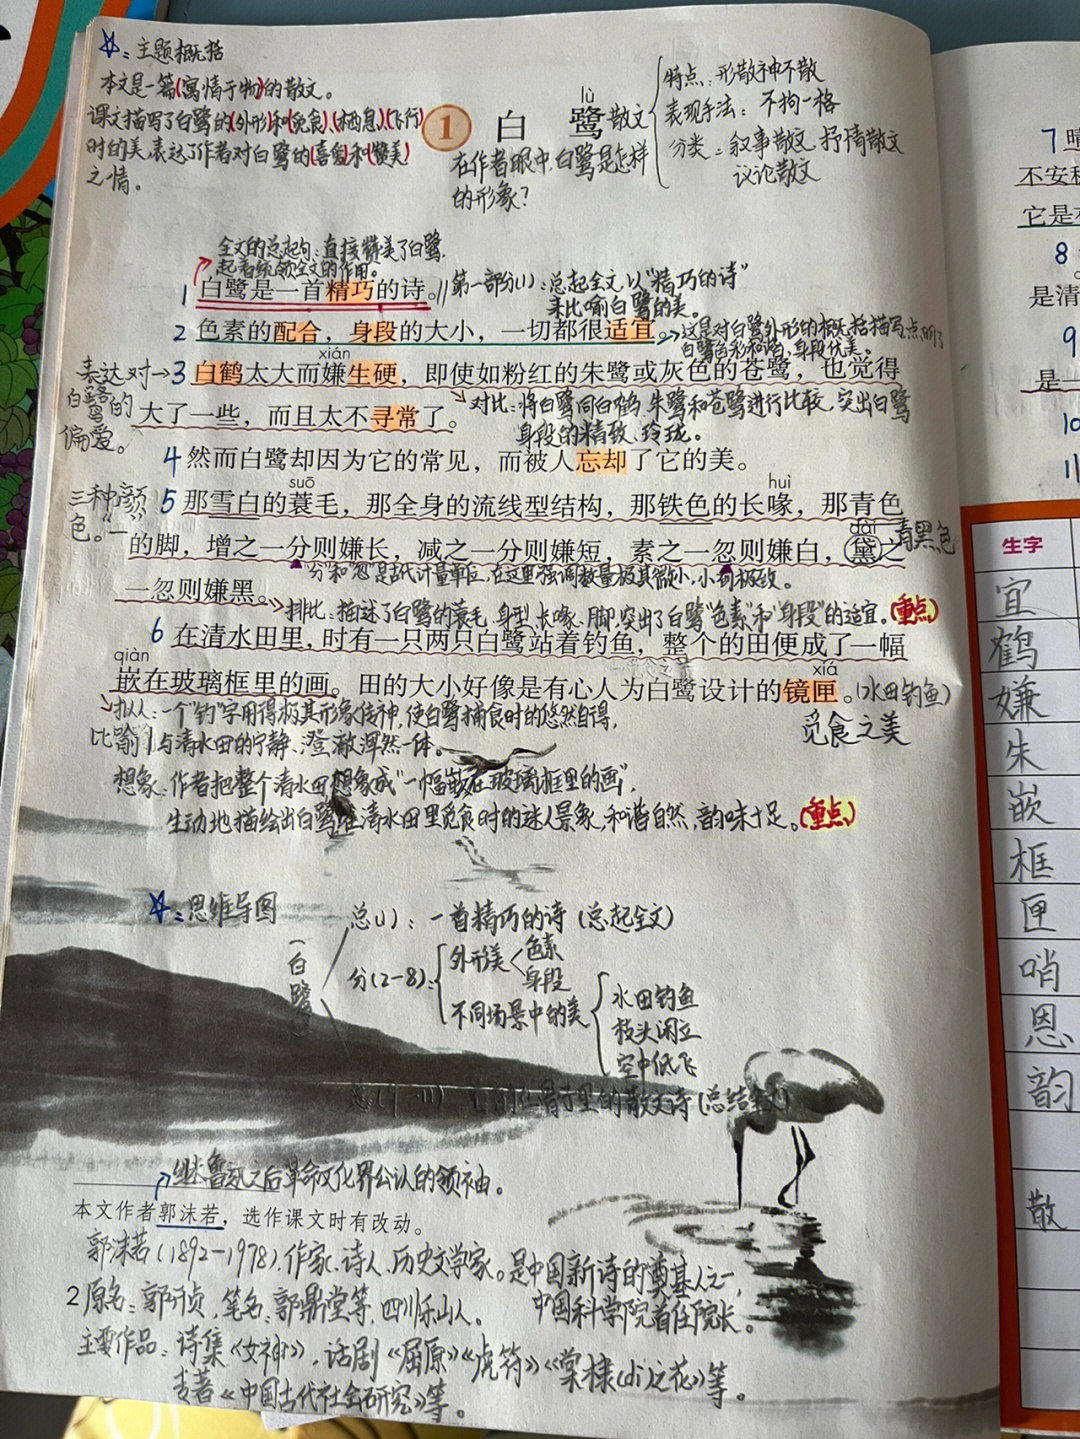 ☆：主题概括
本文是一篇(寓情于物)的散文。
课文描写了白鹭的(外形)和(觅食)、(栖息)、(飞行)
时的美,表达了作者对白鹭的(喜爱)和(赞美)
之情。
1 白鹭
lù
散文
特点：形散神不散
表现手法：不拘一格
分类：叙事散文、抒情散文
议论散文
在作者眼中,白鹭是怎样
的形象?
全文的总起句：直接赞美了白鹭,
起着统领全文的作用。
1 白鹭是一首精巧的诗。
第一部分(1)：总起全文,以"精巧的诗"
来比喻白鹭的美。
2 色素的配合，身段的大小，一切都很适宜。
这是对白鹭外形的概括描写,点明了
白鹭色彩和谐、身段优美。
xián
表达对
白鹭的
偏爱。
3 白鹤太大而嫌生硬，即使如粉红的朱鹭或灰色的苍鹭，也觉得
大了一些，而且太不寻常了。
对比：将白鹭同白鹤、朱鹭和苍鹭进行比较,突出白鹭
身段的精致、玲珑。
4 然而白鹭却因为它的常见，而被人忘却了它的美。
suō
huì
三种颜
色。
5 那雪白的蓑毛，那全身的流线型结构，那铁色的长喙，那青色
dài
青黑色
的脚，增之一分则嫌长，减之一分则嫌短，素之一忽则嫌白，黛之
"分"和"忽"是古代计量单位,在这里强调数量极其微小,小到极致。
一忽则嫌黑。
排比：描述了白鹭的蓑毛、身型、长喙、脚,突出了白鹭"色素"和"身段"的适宜。(重点)
6 在清水田里，时有一只两只白鹭站着钓鱼，整个的田便成了一幅
qiàn
xiá
嵌在玻璃框里的画。田的大小好像是有心人为白鹭设计的镜匣。
(水田钓鱼)
觅食之美
拟人：一个"钓"字用得极其形象传神,使白鹭捕食时的悠然自得,
比喻
与清水田的宁静、澄澈浑然一体。
想象：作者把整个清水田想象成"一幅嵌在玻璃框里的画",
生动地描绘出白鹭在清水田里觅食时的迷人景象,和谐自然,韵味十足。(重点)
☆：思维导图
白鹭
总(1)：一首精巧的诗(总起全文)
分(2-8)：
外形美
色素
身段
不同场景中的美
水田钓鱼
枝头闲立
空中低飞
骨子里的散文诗(总结全文)
继鲁迅之后革命文化界公认的领袖。
本文作者郭沫若，选作课文时有改动。
郭沫若(1892-1978),作家、诗人、历史文学家。是中国新诗的奠基人之一,
中国科学院首任院长。
2
原名：郭开贞,笔名：郭鼎堂等,四川乐山人。
主要作品：诗集《女神》,话剧《屈原》《虎符》《棠棣(dì)之花》等,
专著《中国古代社会研究》等。
7 晴
不安稳
它是在
8
是清
9
是一
10
11
生字
宜
鹤
嫌
朱
嵌
框
匣
哨
恩
韵
散